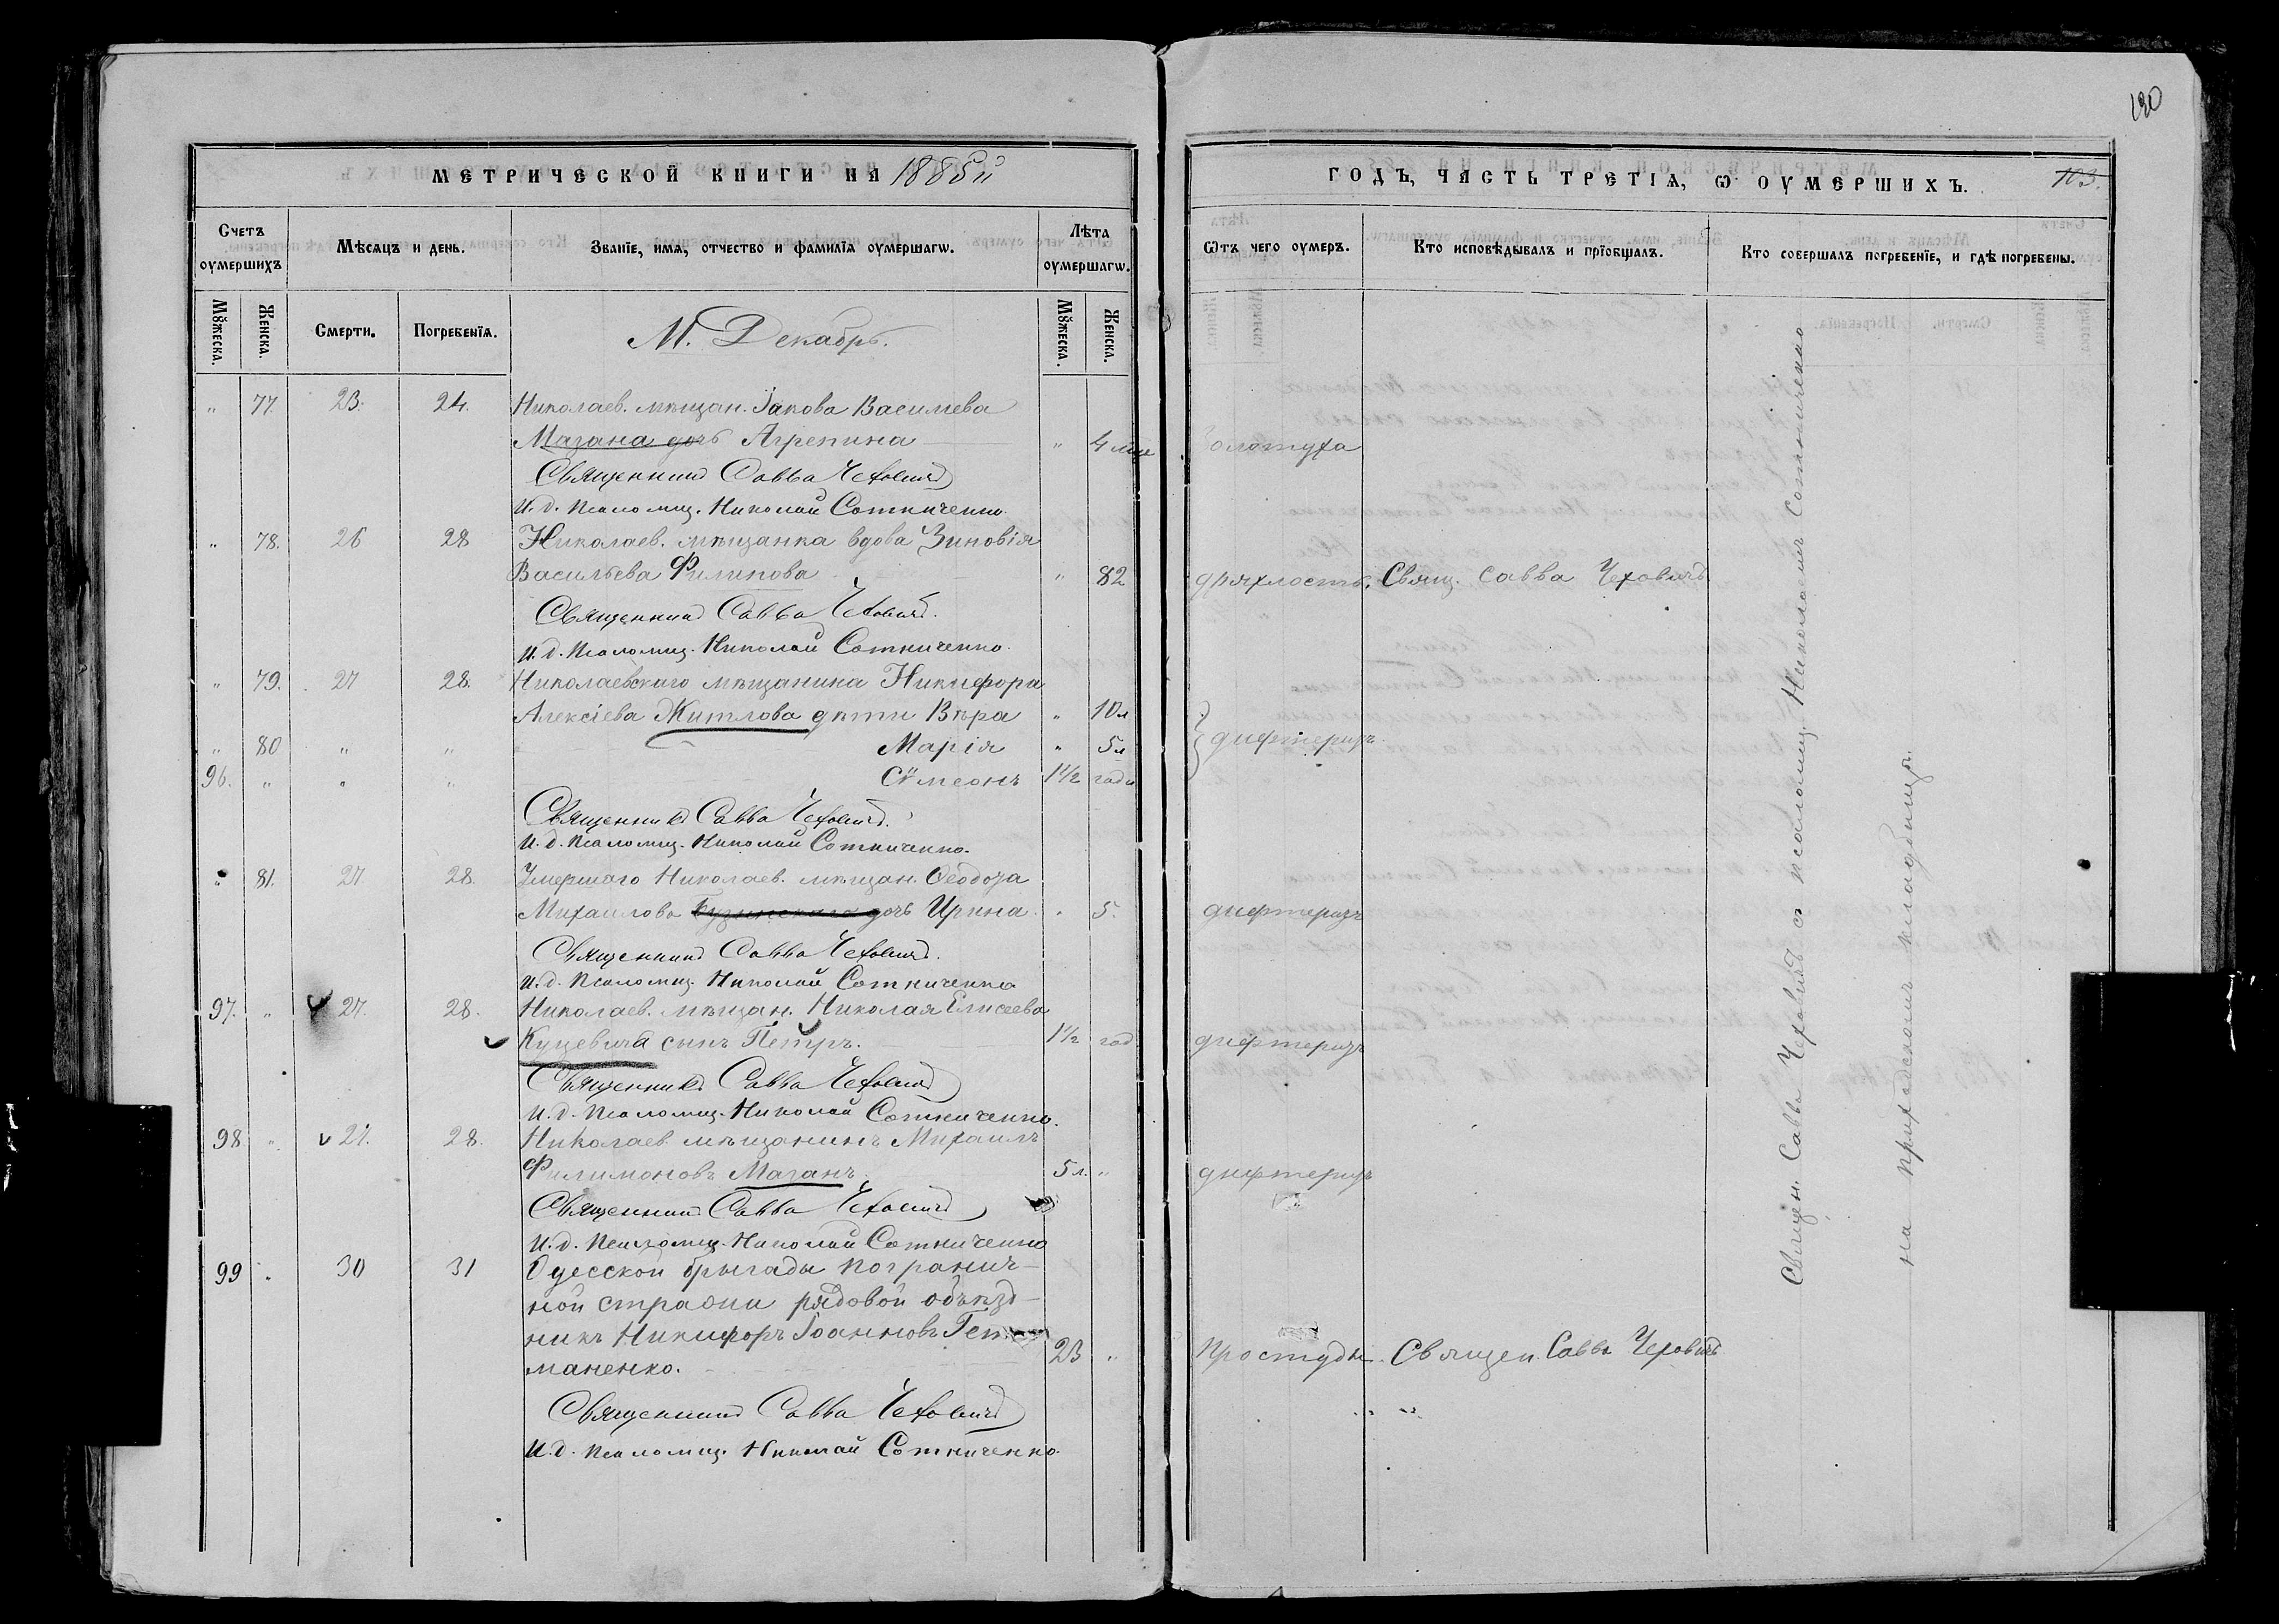 190
МЕТРИЧЕСКОЙ КНИГИ НА 1885й
ГОДЪ, ЧАСТЬ ТРЕТІѦ, Ѡ ОУМЕРШИХЪ.
103.
Счетъ оумершихъ
Мѣсяцъ и день.
Званїе, имѧ, отчество и фамилїѧ оумершагѡ.
Лѣта оумершагѡ.
Ѿтъ чего оумеръ.
Кто исповѣдывалъ и прїобщалъ.
Кто совершалъ погребенїе, и гдѣ погребены.
Мꙋжеска. Женска. Смерти. Погребенїѧ.
Мꙋжеска. Женска.
М. Декабрь.
" 77. 23. 24. Николаев. мѣщан. Іакова Василиева
Мазана дочь Агрепина " 4 мце золотуха
Священникъ Савва Чеховичъ
И. д. Псаломщ. Николай Сотниченко.
" 78. 26 28 Николаев. мѣщанка вдова Зиновія
Васильева Филипова " 82 дряхлость. Свящ. Савва Чеховичъ
Священникъ Савва Чеховичъ.
И. д. Псаломщ. Николай Сотниченко.
" 79. 27 28. Николаевскаго мѣщанина Никифора
Алексіева Житлова дѣти Вѣра " 10 л
" 80 " " Марія " 5 л дифтеритъ.
96. " " " Сѵмеонъ 1 1/2 года
Священникъ Савва Чеховичъ.
И. д. Псаломщ. Николай Сотниченко.
" 81. 27 28. Умершаго Николаев. мѣщан. Ѳеодора
Михаилова дочь Ирина. " 5. дифтеритъ
Священникъ Савва Чеховичъ.
И. д. Псаломщ. Николай Сотниченко
97. " 27. 28. Николаев. мѣщан. Николая Елисеева
Куцевича сынъ Петръ. 1 1/2 год дифтеритъ
Священникъ Савва Чеховичъ
И. д. Псаломщ. Николай Сотниченко.
98 " 27. 28. Николаев. мѣщанинъ Михаилъ
Филимоновъ Маганъ 5 л. " дифтеритъ
Священникъ Савва Чеховичъ
И. д. Псаломщ. Николай Сотниченко
99 " 30 31 Одесской бригады погранич-
ной стражи рядовой объѣзд-
никъ Никифоръ Іоанновъ Гет
маненко. 23 " Простуды. Священ. Савва Чеховичъ
Священникъ Савва Чеховичъ
И. д. Псаломщ. Николай Сотниченко.
Священ. Савва Чеховичъ съ псаломщ. Николаемъ Сотниченко
на приходскомъ кладбищѣ.